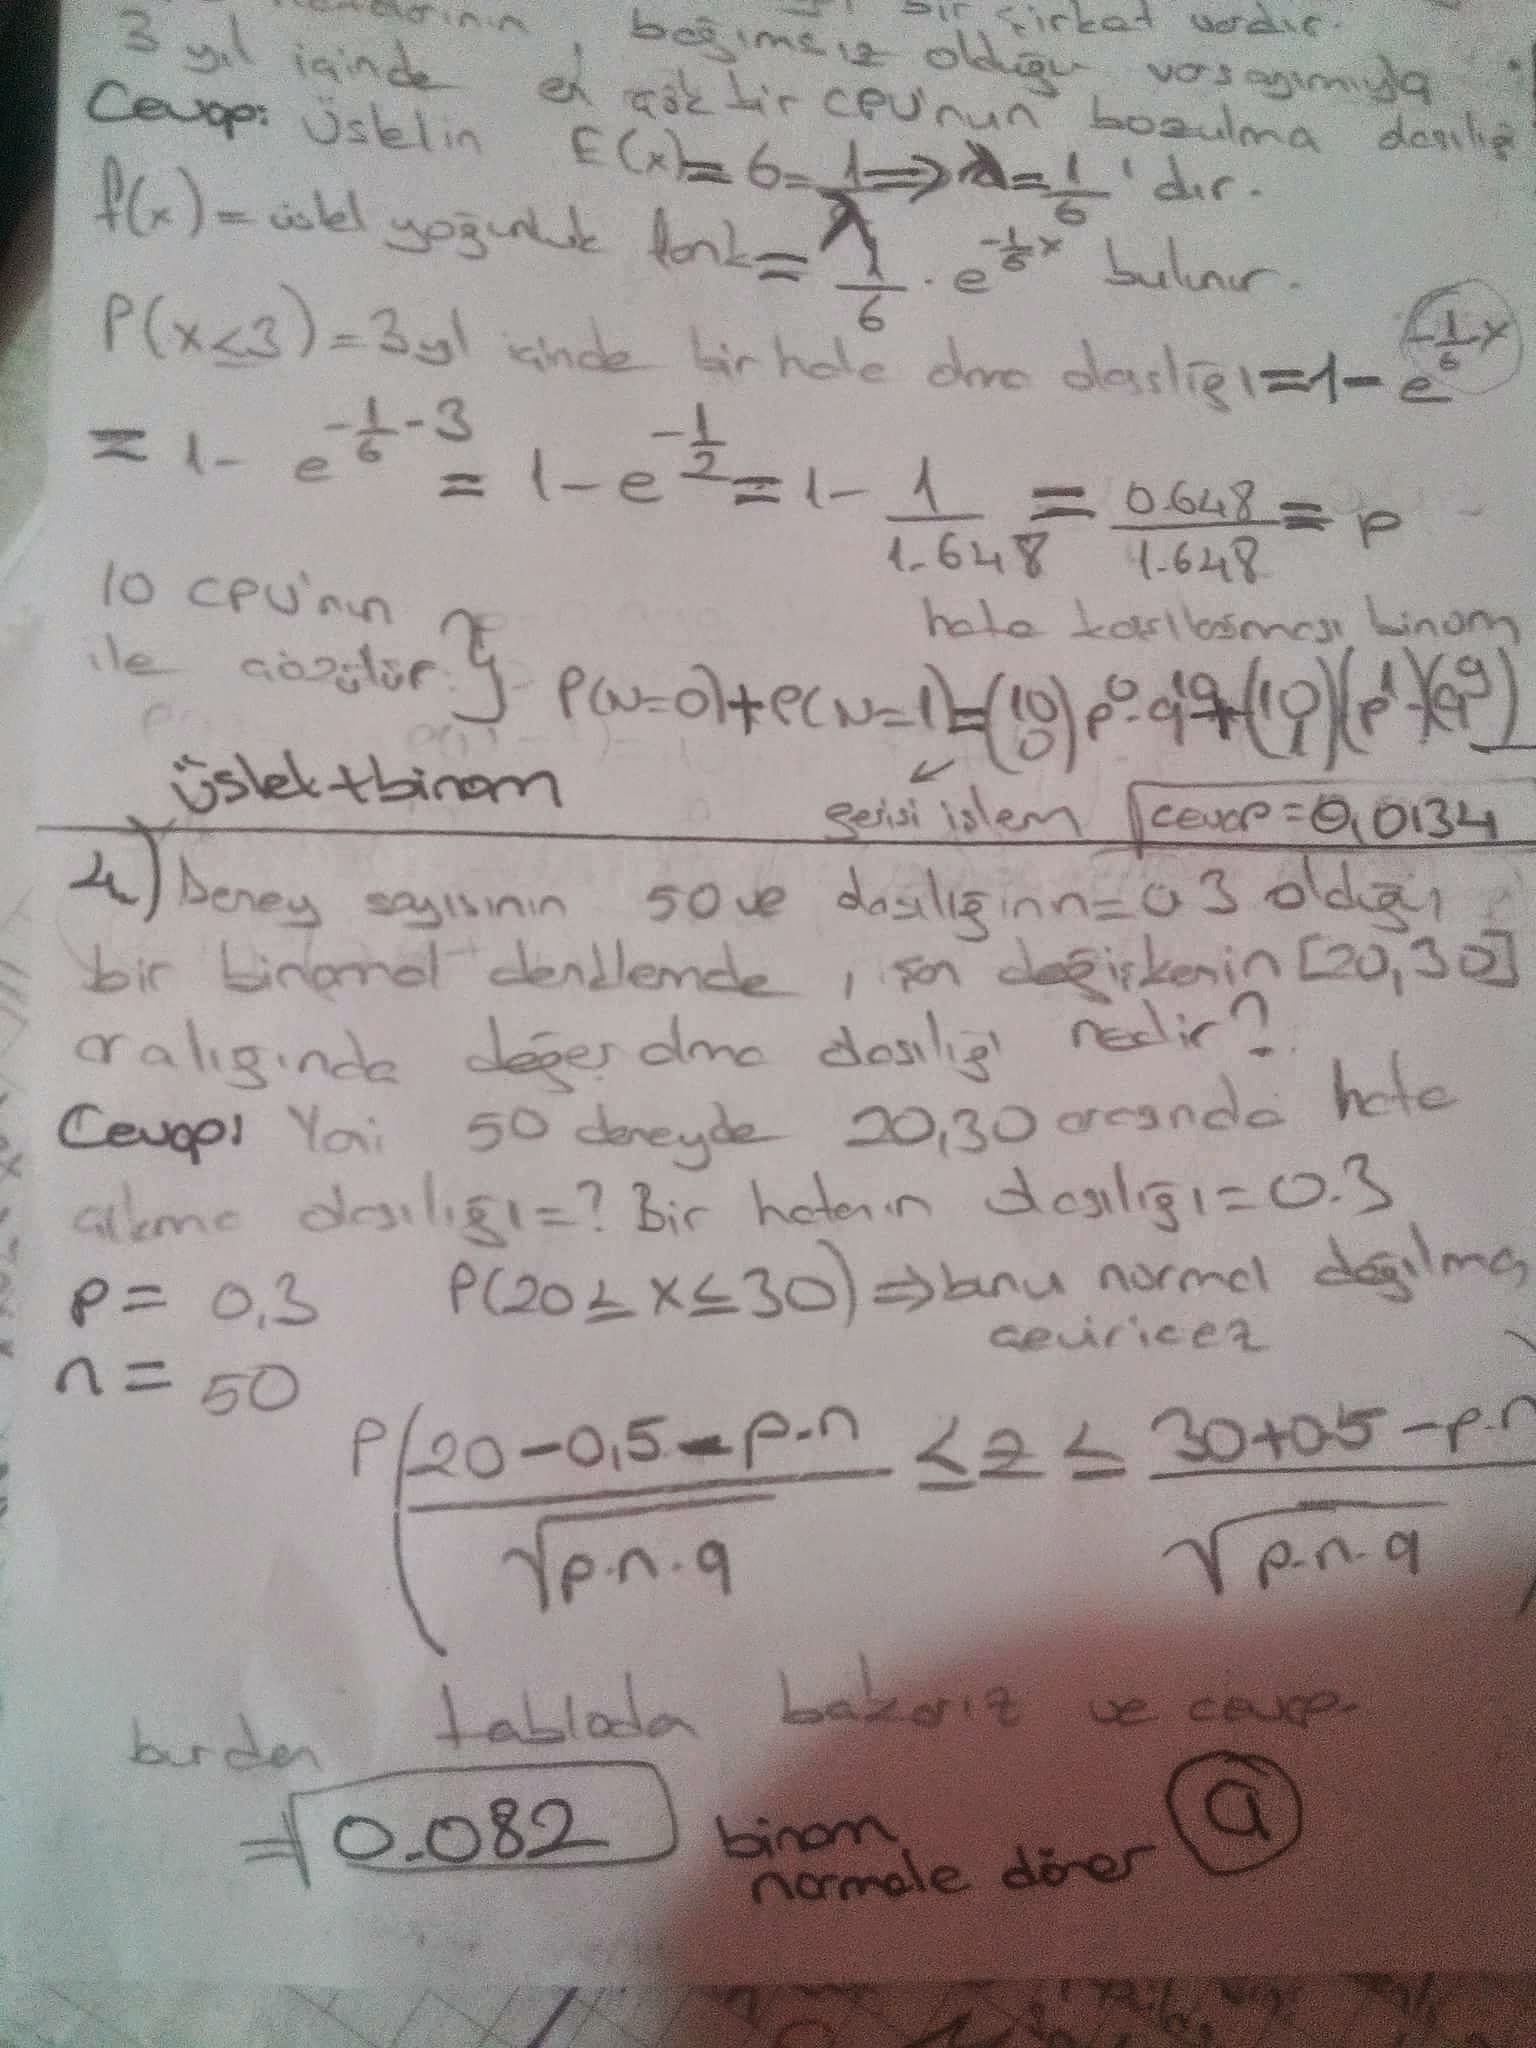 bir şirket vardır.
3 yıl içinde, bağımsız olduğu varsayımıyla
Cevap: Üstelin en çok bir CPU'nun bozulma dasılığı
E(x)=6=1/λ⇒λ=1/6'dır.
f(x)=üstel yoğunluk fonk=1/6.e^-1/6x bulunur.
P(x≤3)=3yıl içinde bir hata olma olasılığı=1-e^-1/6x
=1-e^-1/6-3=1-e^-1/2=1-1/1.648=0.648/1.648=p
10 CPU'nın hata karşılaşması binom
ile çözülür.} P(N=0)+P(N=1)=(10 0)p^0.q^10+(10 1)(p^1)(q^9)
Üstel+binom gerisi işlem cevap=0,0134
4) Deney sayısının 50 ve olasılığının=0 3 olduğu
bir binomal denklemde, şon değişkenin [20,30]
aralığında değer alma olasılığı nedir?
Cevap: Yani 50 deneyde 20,30 arasında hata
çıkma olasılığı=? Bir hatanın olasılığı=0.3
p=0,3 P(20≤x≤30)⇒bunu normal dağılma
çeviricez
n=50
P(20-0,5-p.n/√p.n.q ≤z≤ 30+0.5-p.n/√p.n.q)
burdan tabloda bakarız ve cevap.
=0.082 binom a
normale döner